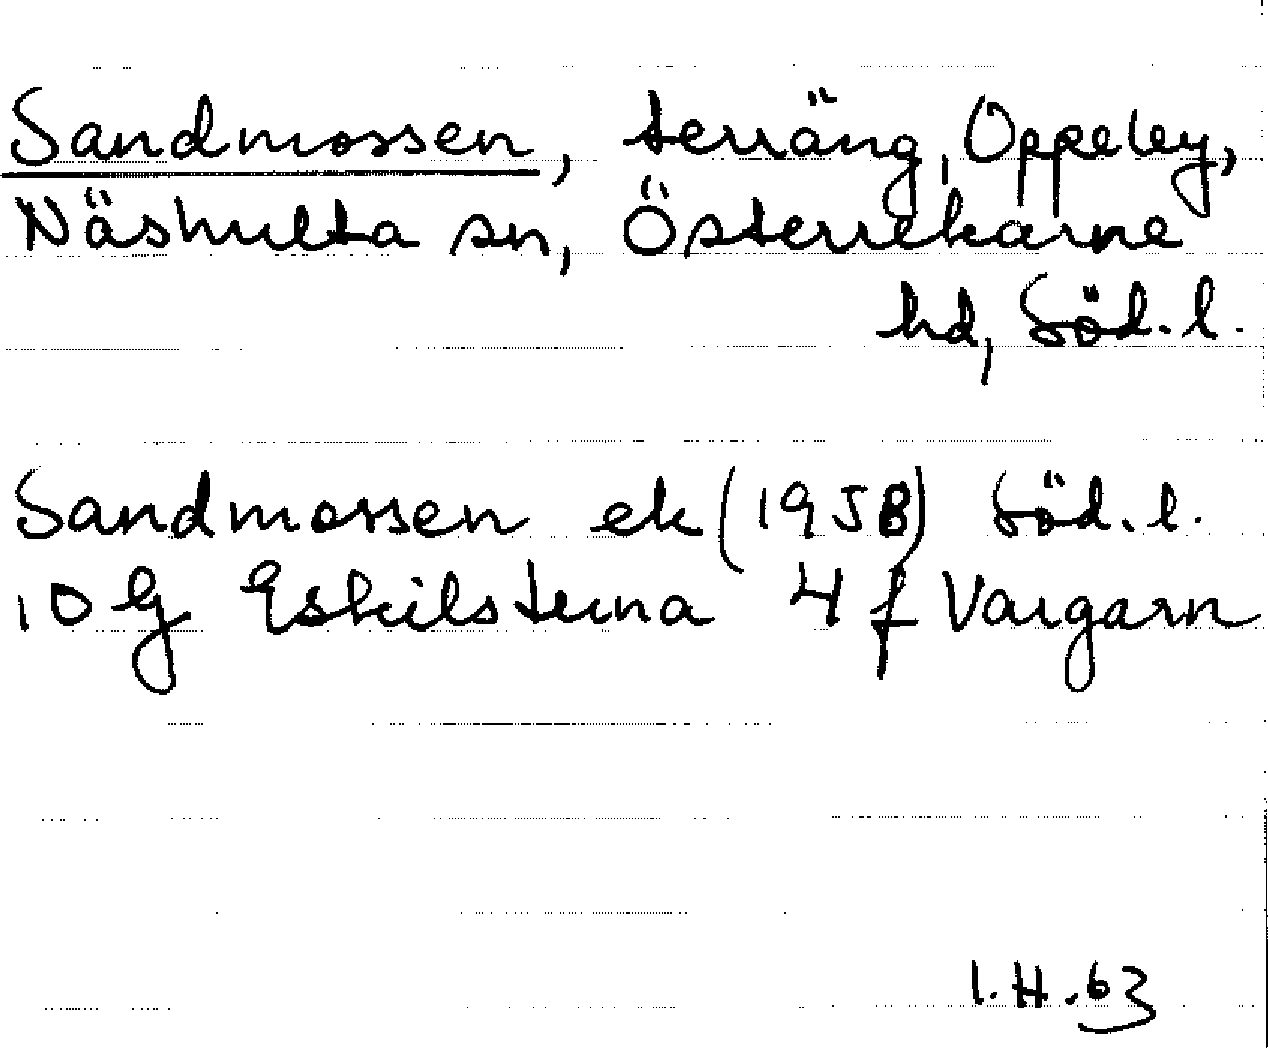 Sandmossen, terräng, Oppeby,
Näshulta sn, Österrekarne
hd, Söd.l.
Sandmossen ek (1958) Söd.l.
10 G Eskilstuna 4 f Vargarn
I.H.63